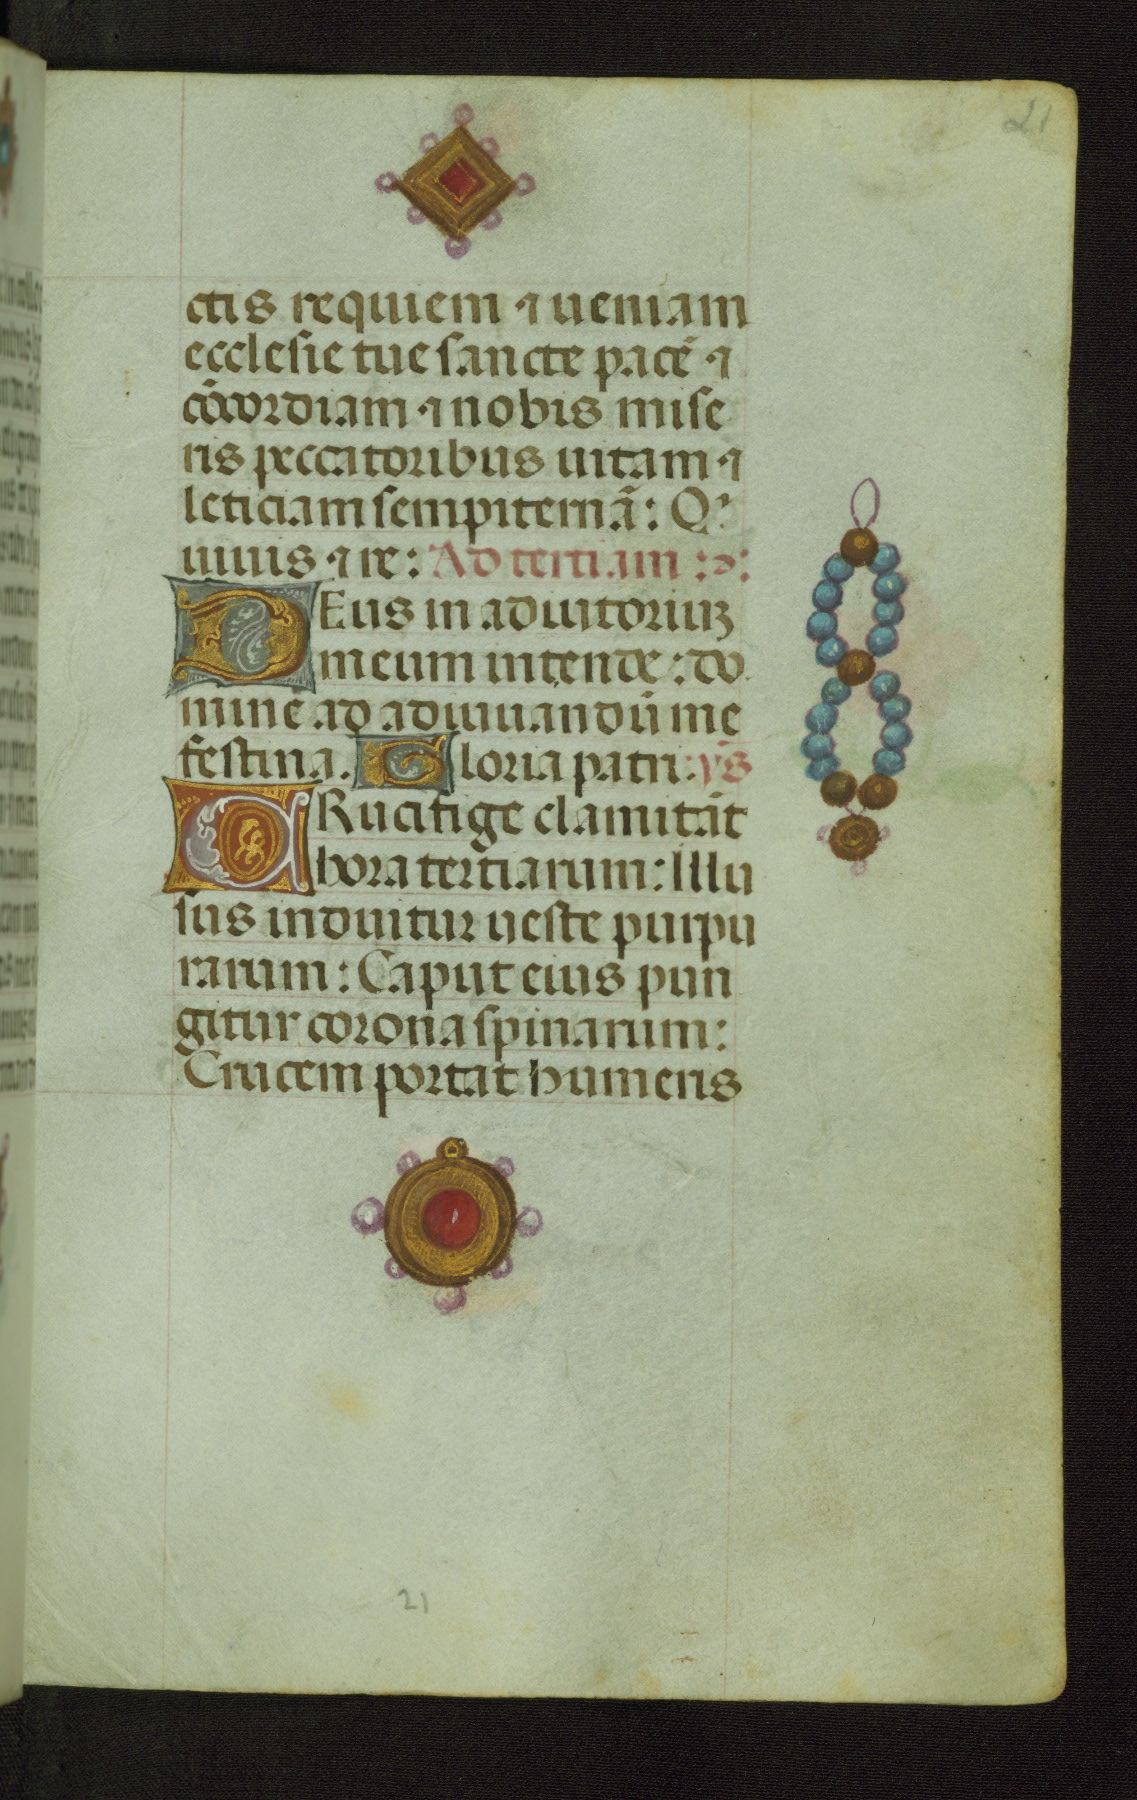 21
ctis requiem ⁊ ueniam
ecclesie tue sancte pacē ⁊
cōcordiam ⁊ nobis mise
ris peccatoribus uitam ⁊
leticiam sempiternā: Qͥ
uiuis ⁊ re: Ad tertiam :ↄ:
DEus in adiutoriuꝫ
meum intende: do
mine ad adiuuandū me
festina. Gloria patri. ys̄
CRucifige clamitāt
hora tertiarum: Illu
sus induitur ueste purpu
rarum: Caput eius pun
gitur corona spinarum:
Crucem portat humeris
21